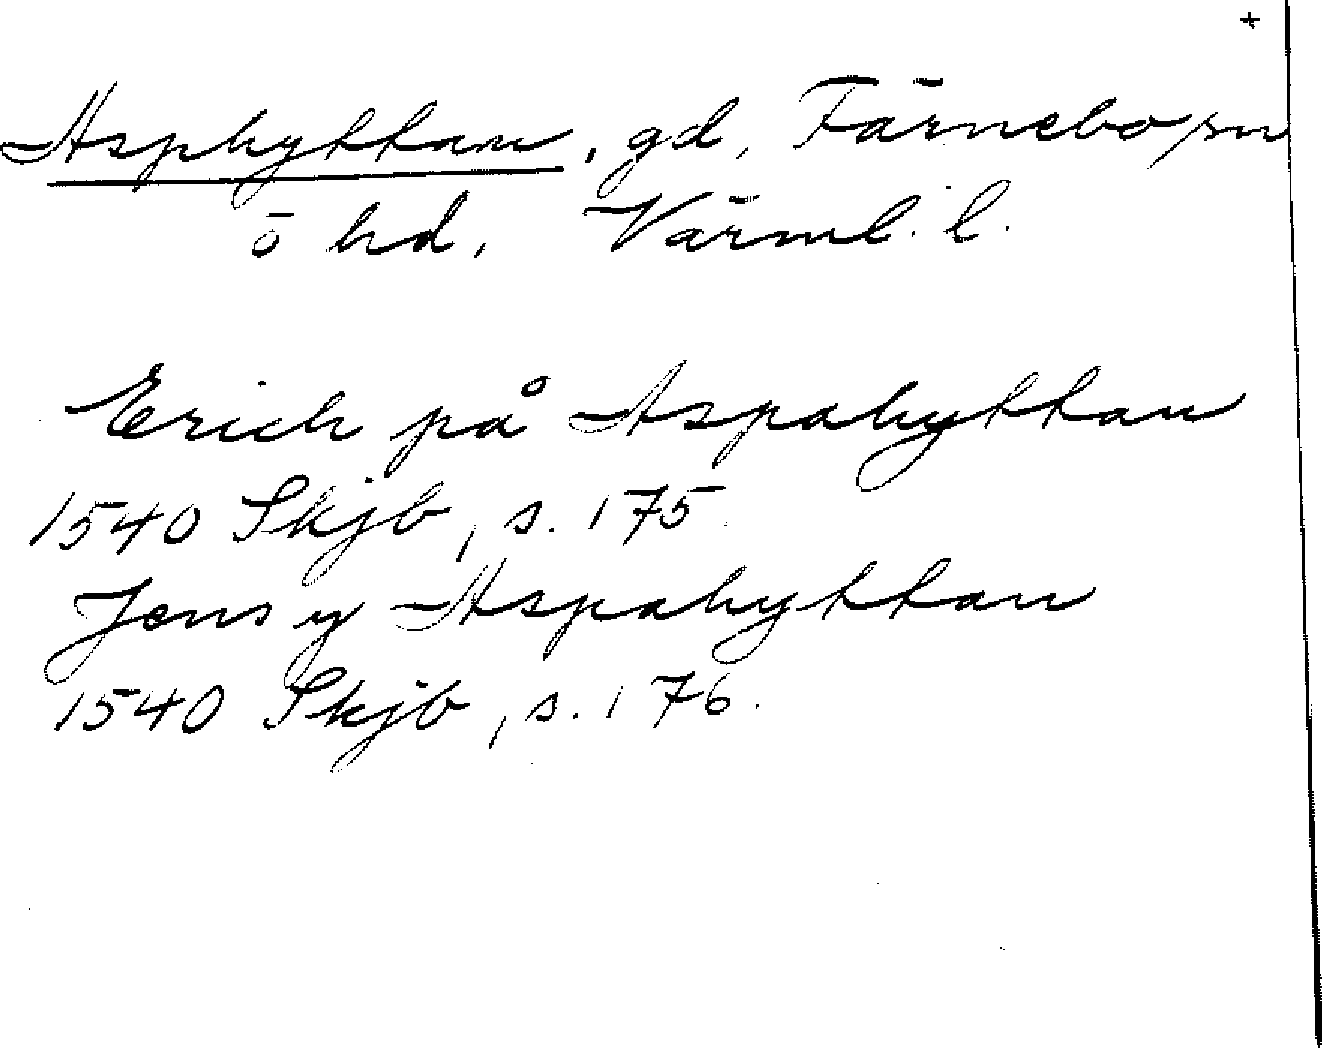 +
Asphyttan, gd, Färnebo sn
o hd, Värml. l.
Erich på Aspahyttan
1540 Skjb, s. 175.
Jens y Aspahyttan
1540 Skjb, s. 176.